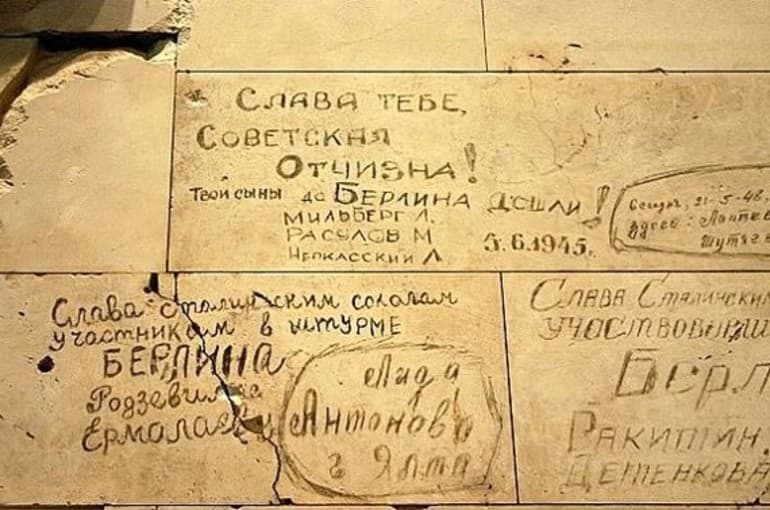 СЛАВА ТЕБЕ,
СОВЕТСКАЯ
ОТЧИЗНА!
ТВОИ СЫНЫ ДО БЕРЛИНА ДОШЛИ!
МИЛЬБЕРГ Л.
РАСУЛОВ М 5.6.1945.
ЧЕРКАССКИЙ Л
21-5-48.
здесь: Лаптев
Шутяг
Слава сталинским соколам
участникам в штурме
БЕРЛИНА
Родзевил
Ермалаеву
Лида
Антонова
г Ялта
СЛАВА СТАЛИНСКИ
УЧАСТВОВАВШ
БЕРЛ
РАКИТИН
ДЕТЕНКОВА